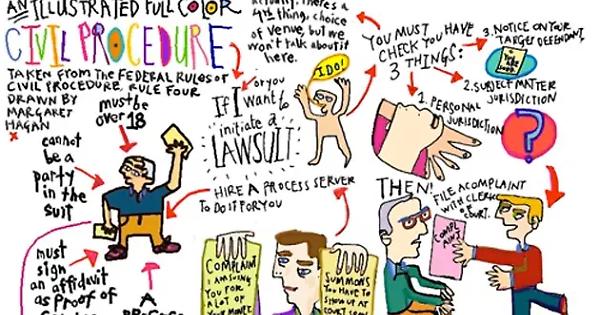 AN ILLUSTRATED FULL COLOR
CIVIL PROCEDURE
TAKEN FROM THE FEDERAL RULES OF
CIVIL PROCEDURE, RULE FOUR
DRAWN BY
MARGARET
HAGAN
there's a
4th thing, choice
of venue, but we
won't talk about it
here.
IF I
or you
want to
initiate a
LAWSUIT
I DO!
YOU MUST
CHECK YOU HAVE
3 THINGS:
1. PERSONAL
JURISDICTION
2. SUBJECT MATTER
JURISDICTION
3. NOTICE ON YOUR
TARGET DEFENDANT.
?
THEN!
FILE A COMPLAINT
WITH CLERK
OF
COURT.
COMPL
AINT
HIRE A PROCESS SERVER
TO DO IT FOR YOU
must be
over 18
cannot
be a
party
in the
suit
must
sign
an affidavit
as proof of
A
COMPLAINT
I AM SUING
YOU FOR
A LOT OF
YOUR MONEY
SUMMONS
YOU HAVE TO
SHOW UP AT
COURT